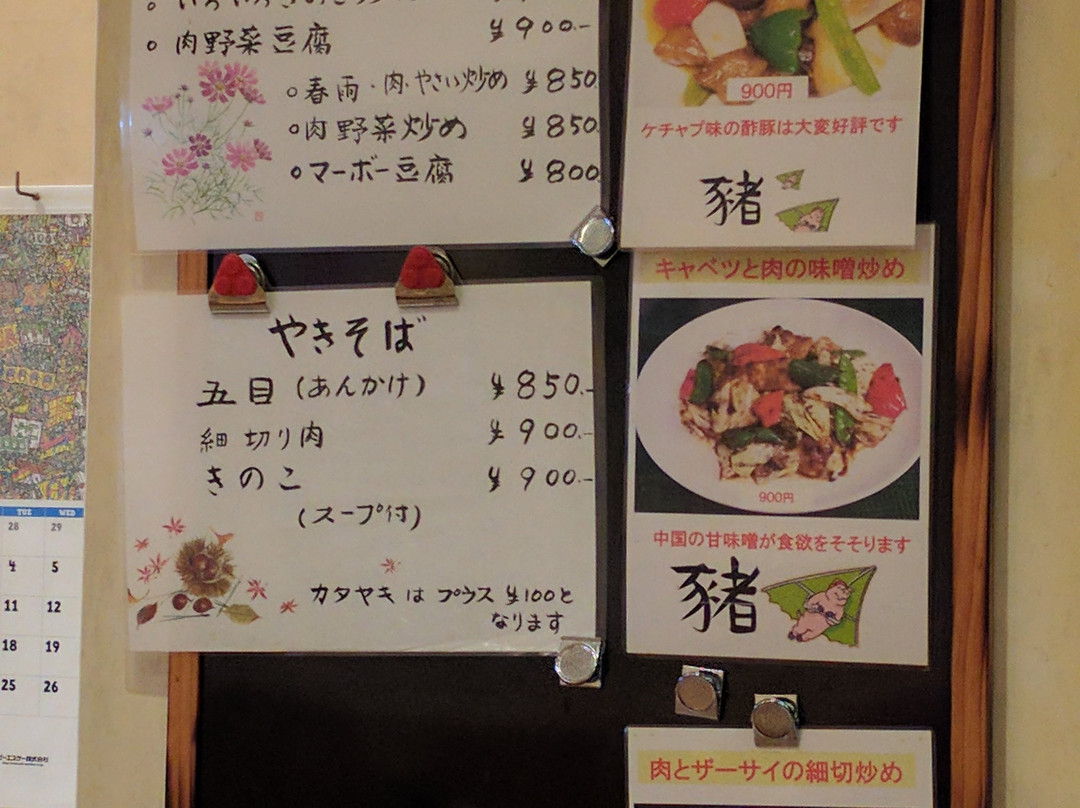 肉野菜豆腐 ¥900.-
春雨・肉・やさい炒め ¥850
肉野菜炒め ¥850
マーボー豆腐 ¥800
900円
ケチャプ味の酢豚は大変好評です
豬
やきそば
五目(あんかけ) ¥850.-
細切り肉 ¥900.-
きのこ ¥900.-
(スープ付)
カタヤキは プラス ¥100と
なります
キャベツと肉の味噌炒め
900円
中国の甘味噌が食欲をそそります
豬
肉とザーサイの細切炒め
TUE WED
28 29
4 5
11 12
18 19
25 26